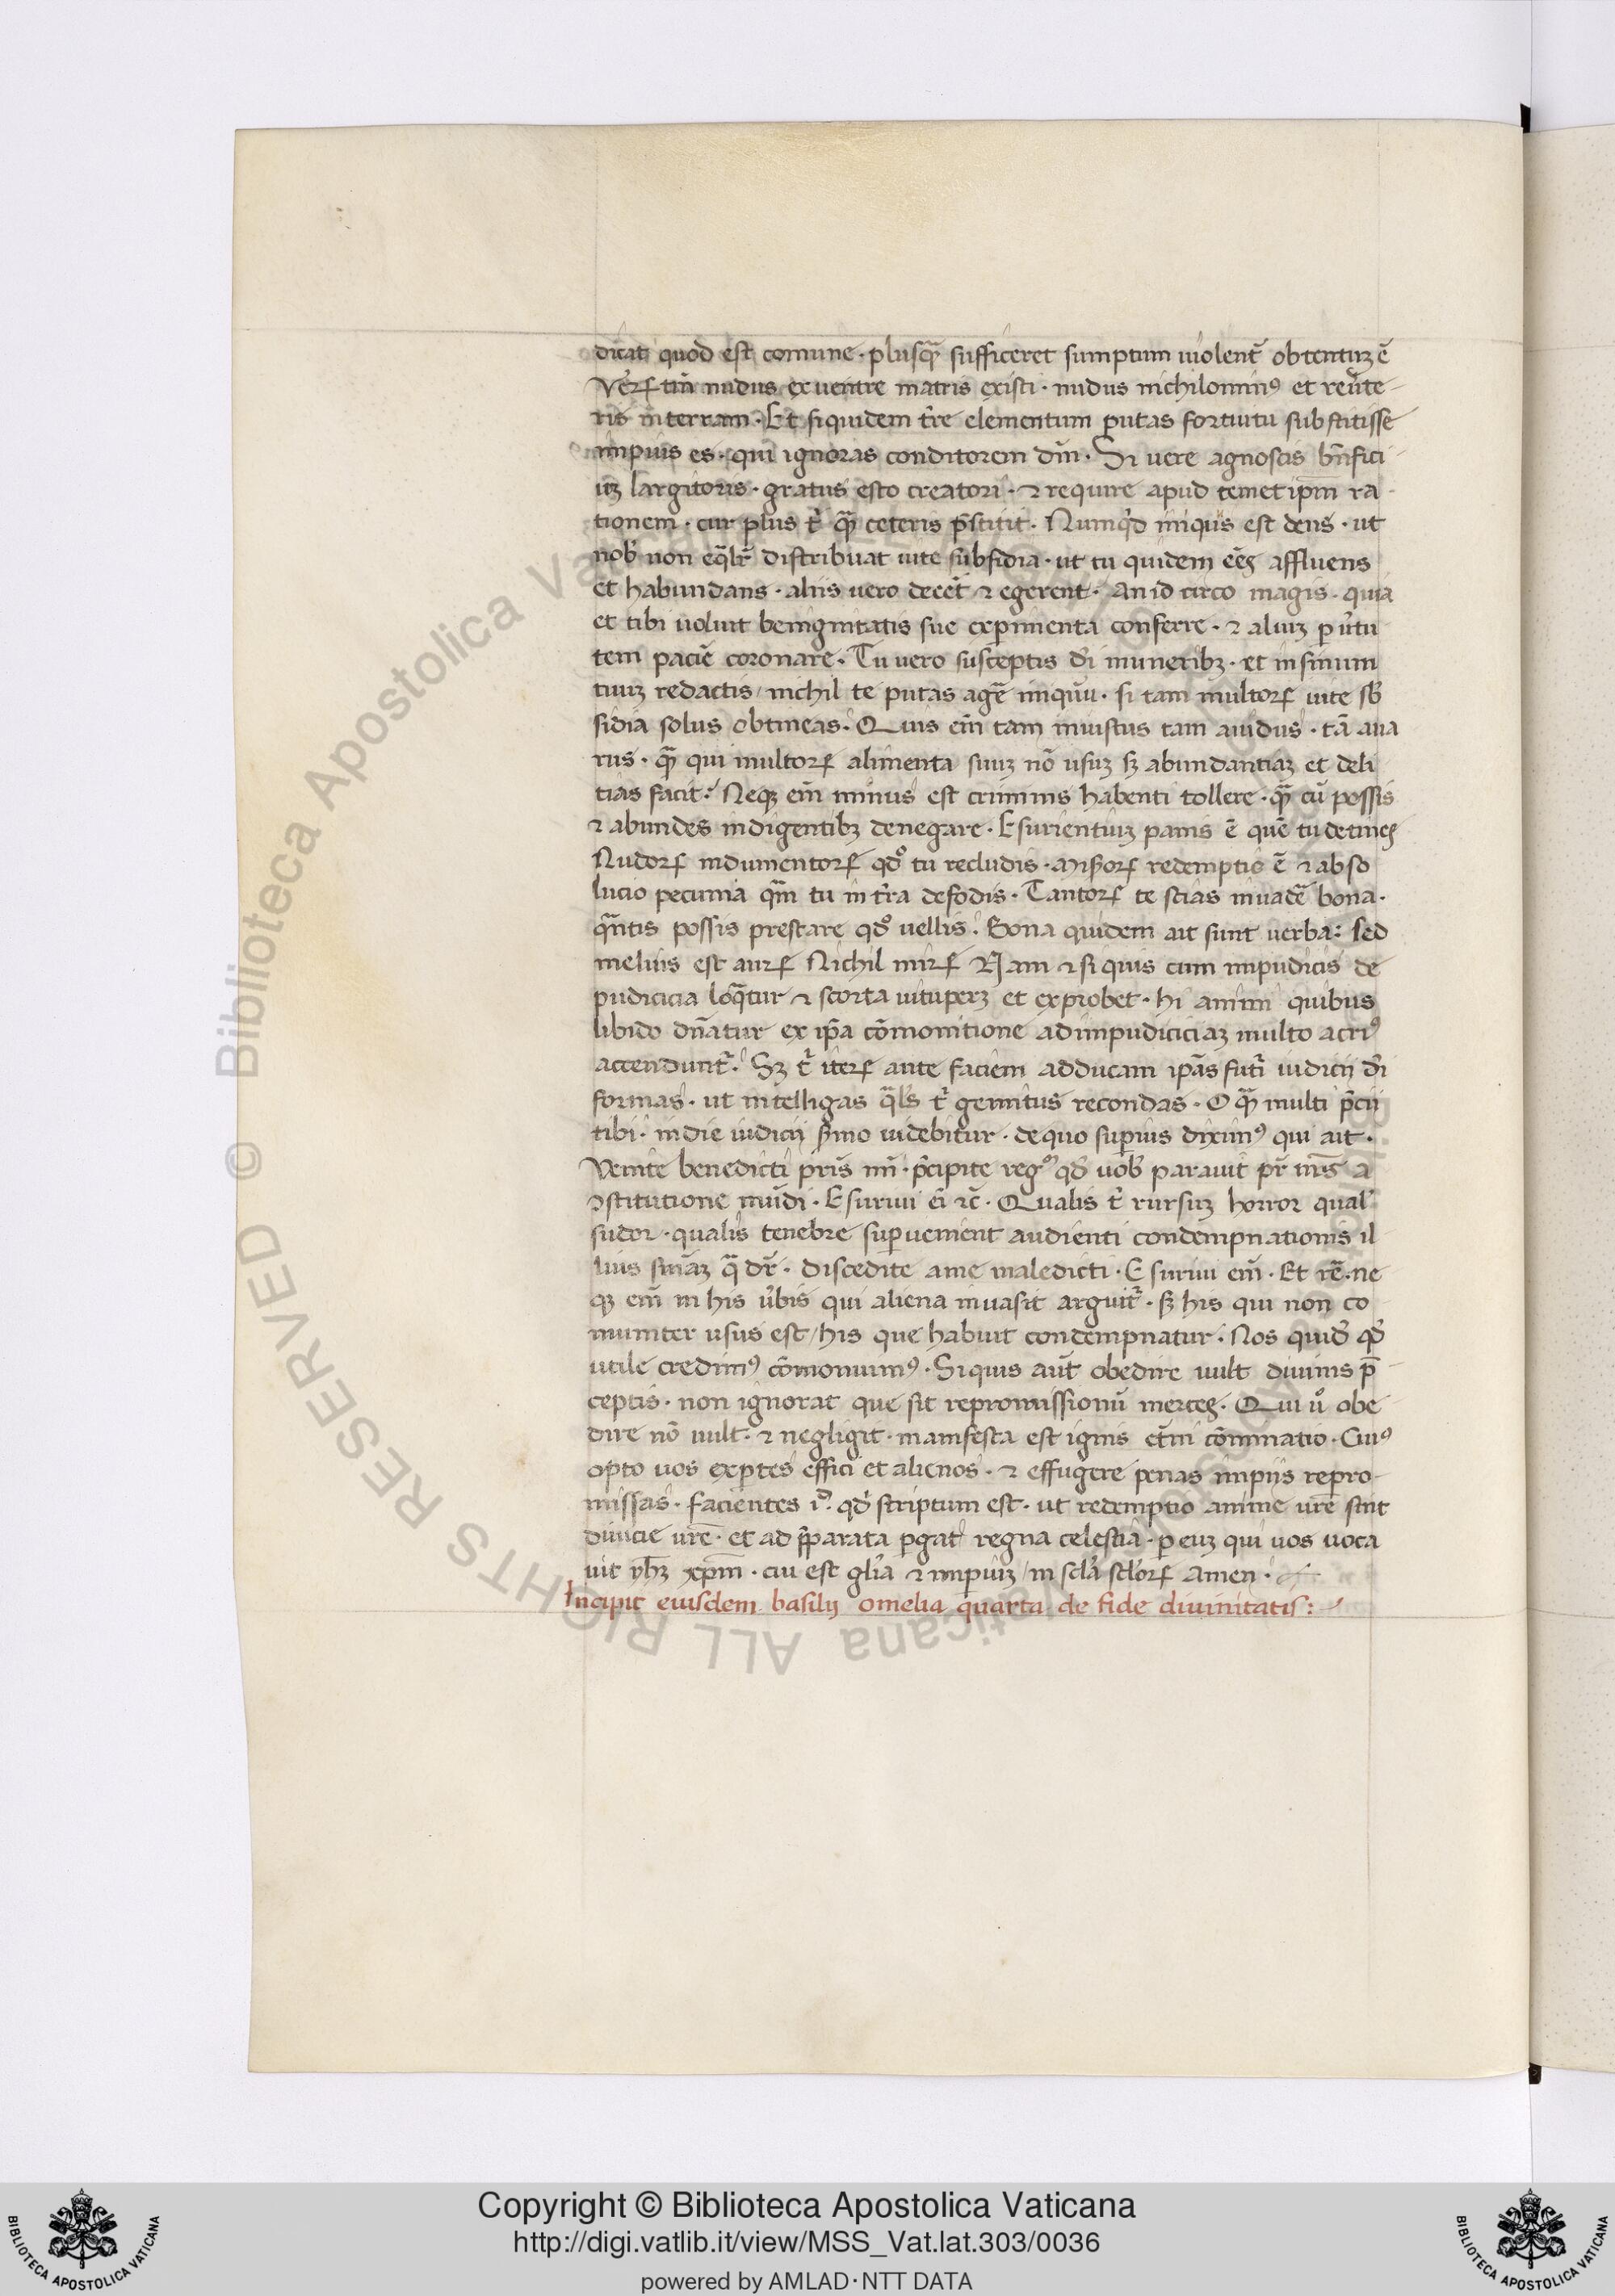 dicat quod est comune · plusꝙ̃ sufficeret sumptum uiolent᷒ obtentuꝫ ē
Veꝝ tm̄ nudus ex uentre matris existi · nudus nichilominꝰ et reu̓te-
ris in terram · Et si quidem tr̄e elementum putas fortuitu substitisse
impius es · qui ignoras conditorem dm̄ · Si uere agnoscis bn̄fici-
uꝫ largitoris · gratus esto creatori · ⁊ require apud temet ip̄m ra-
tionem · cur plus t̓ ꝙ̃ ceteris p̄stitit · Nunqͥd iniquus est deus · ut
nob̓ non eq̄lr̄ distribuat uite subsidia · ut tu quidem ēēs affluens
et habundans · aliis uero deeēt ⁊ egerent · an id circo magis · quia
et tibi uoluit benignitatis sue experimenta conferre · ⁊ aliuꝫ p u̓tu
tem paciē coronare · Tu uero susceptis dei muneribꝫ · et in sinum
tuuꝫ redactis / nichil te putas agē̄ iniquū · si tam multoꝝ uite sb̓
sidia solus obtineas · Quis em̄ tam iniustus tam auidus · tā aua
rus · ꝙ̃ qui multoꝝ alimenta suuꝫ nō usuꝫ sꝫ abundantiaꝫ et deli
tias facit? Neqꝫ em̄ minus est criminis habenti tollere · ꝙ̃ cū possis
⁊ abundes indigentibꝫ denegare · Esurientiuꝫ panis ē quē tu detines
Nudoꝝ indumentoꝝ qd̓ tu recludis · Misoꝝ redemptio ē ⁊ abso
lucio pecunia qm̄ tu in tr̄a defodis · Tantoꝝ te scias inuadē bona ·
qͣntis possis prestare qd̓ uellis · Bona quidem ait sunt uerba: sed
melius est auꝝ Nichil miꝝ Nam ⁊ si quis cum impudicis de
pudicicia loq̄tur ⁊ scorta uituperꝫ et exprobet · hi animi quibus
libido dn̄atur ex ip̄a cōmonitione ad impudiciciaꝫ multo acriꝰ
accendunt᷒ · Sꝫ t̓ iteꝝ ante faciem adducam ip̄as futi̓ iudicij dei
formas · ut intelligas q̄l̓s t̓ gemitus recondas · O ꝙ̃ multi p̄cij
tibi · in die iudicij s̓mo uidebitur · de quo superius diximꝰ qui ait ·
Venite benedicti pr̄is mī · p̄cipite regͦ qd̓ uob̓ parauit pr̄ mꝰ a
ꝯstitutione mūdi · Esuriui ei̓ ⁊c̄ · Qualis t̓ rursuꝫ horror qual̓
sudor · qualis tenebre superuenient audienti condempnationis il
lius sn̄iaꝫ q̄ dr̄ · discedite a me maledicti · Esuriui em̄ · Et rē · ne
qꝫ em̄ in his u̓bis qui aliena inuasit arguit᷒ · sꝫ his qui non co
muniter usus est / his que habuit condempnatur · Nos quid̓ qd̓
utile credimꝰ cōmonuimꝰ · Si quis aut̄ obedire uult diuinis p̄
ceptis · non ignorat que sit repromissionū merces · Qui uͦ obe
dire nō uult · ⁊ negligit · manifesta est ignis et̄ni cōminatio · Cuiꝰ
opto uos expertes effici et alienos · ⁊ effugere penas impiis repro-
missas · facientes iͩ · qd̓ scriptum est · ut redemptio anime ur̄e sint
diuitie ur̄e · et ad p̄parata pergat̓ regna celestia · p euꝫ qui uos uoca
uit yh̄ꝫ xp̄m · cui est gl̓ia ⁊ imperiuꝫ / in scl̓a scl̓oꝝ Amen ·
Incipit eiusdem basilij omelia quarta de fide diuinitatis:
© Biblioteca Apostolica Vaticana ALL RIGHTS RESERVED
Copyright © Biblioteca Apostolica Vaticana
http://digi.vatlib.it/view/MSS_Vat.lat.303/0036
powered by AMLAD·NTT DATA
BIBLIOTECA APOSTOLICA VATICANA
BIBLIOTECA APOSTOLICA VATICANA